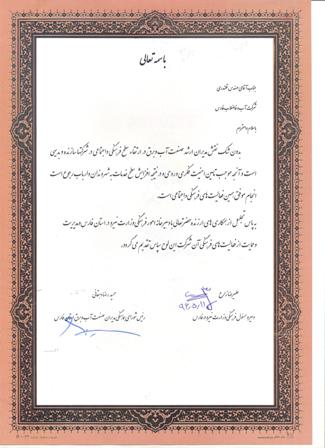 باسمه تعالی
جناب آقای مهندس قلندری
شرکت آب و فاضلاب فارس
با سلام و احترام
بدون شک نقش مدیران ارشد صنعت آب و برق در ارتقاء سطح فرهنگی و اجتماعی در شرکتها سازنده و بدیهی
است و آنچه موجب تامین امنیت فکری و روحی و در نتیجه افزایش سطح خدمات به شهروندان و ارباب رجوع است
انجام موفق همین فعالیت‌های فرهنگی و اجتماعی است.
به پاس تجلیل از همکاری های ارزنده حضرتعالی با دبیرخانه امور فرهنگی وزارت نیرو در استان فارس و مدیریت
و حمایت از فعالیت‌های فرهنگی آن شرکت این لوح سپاس تقدیم می گردد.
علیرضا فرج
حمید رضا دهقانی
دبیر و مسئول فرهنگی وزارت نیرو در فارس
رئیس شورای هماهنگی مدیران صنعت آب و برق استان فارس